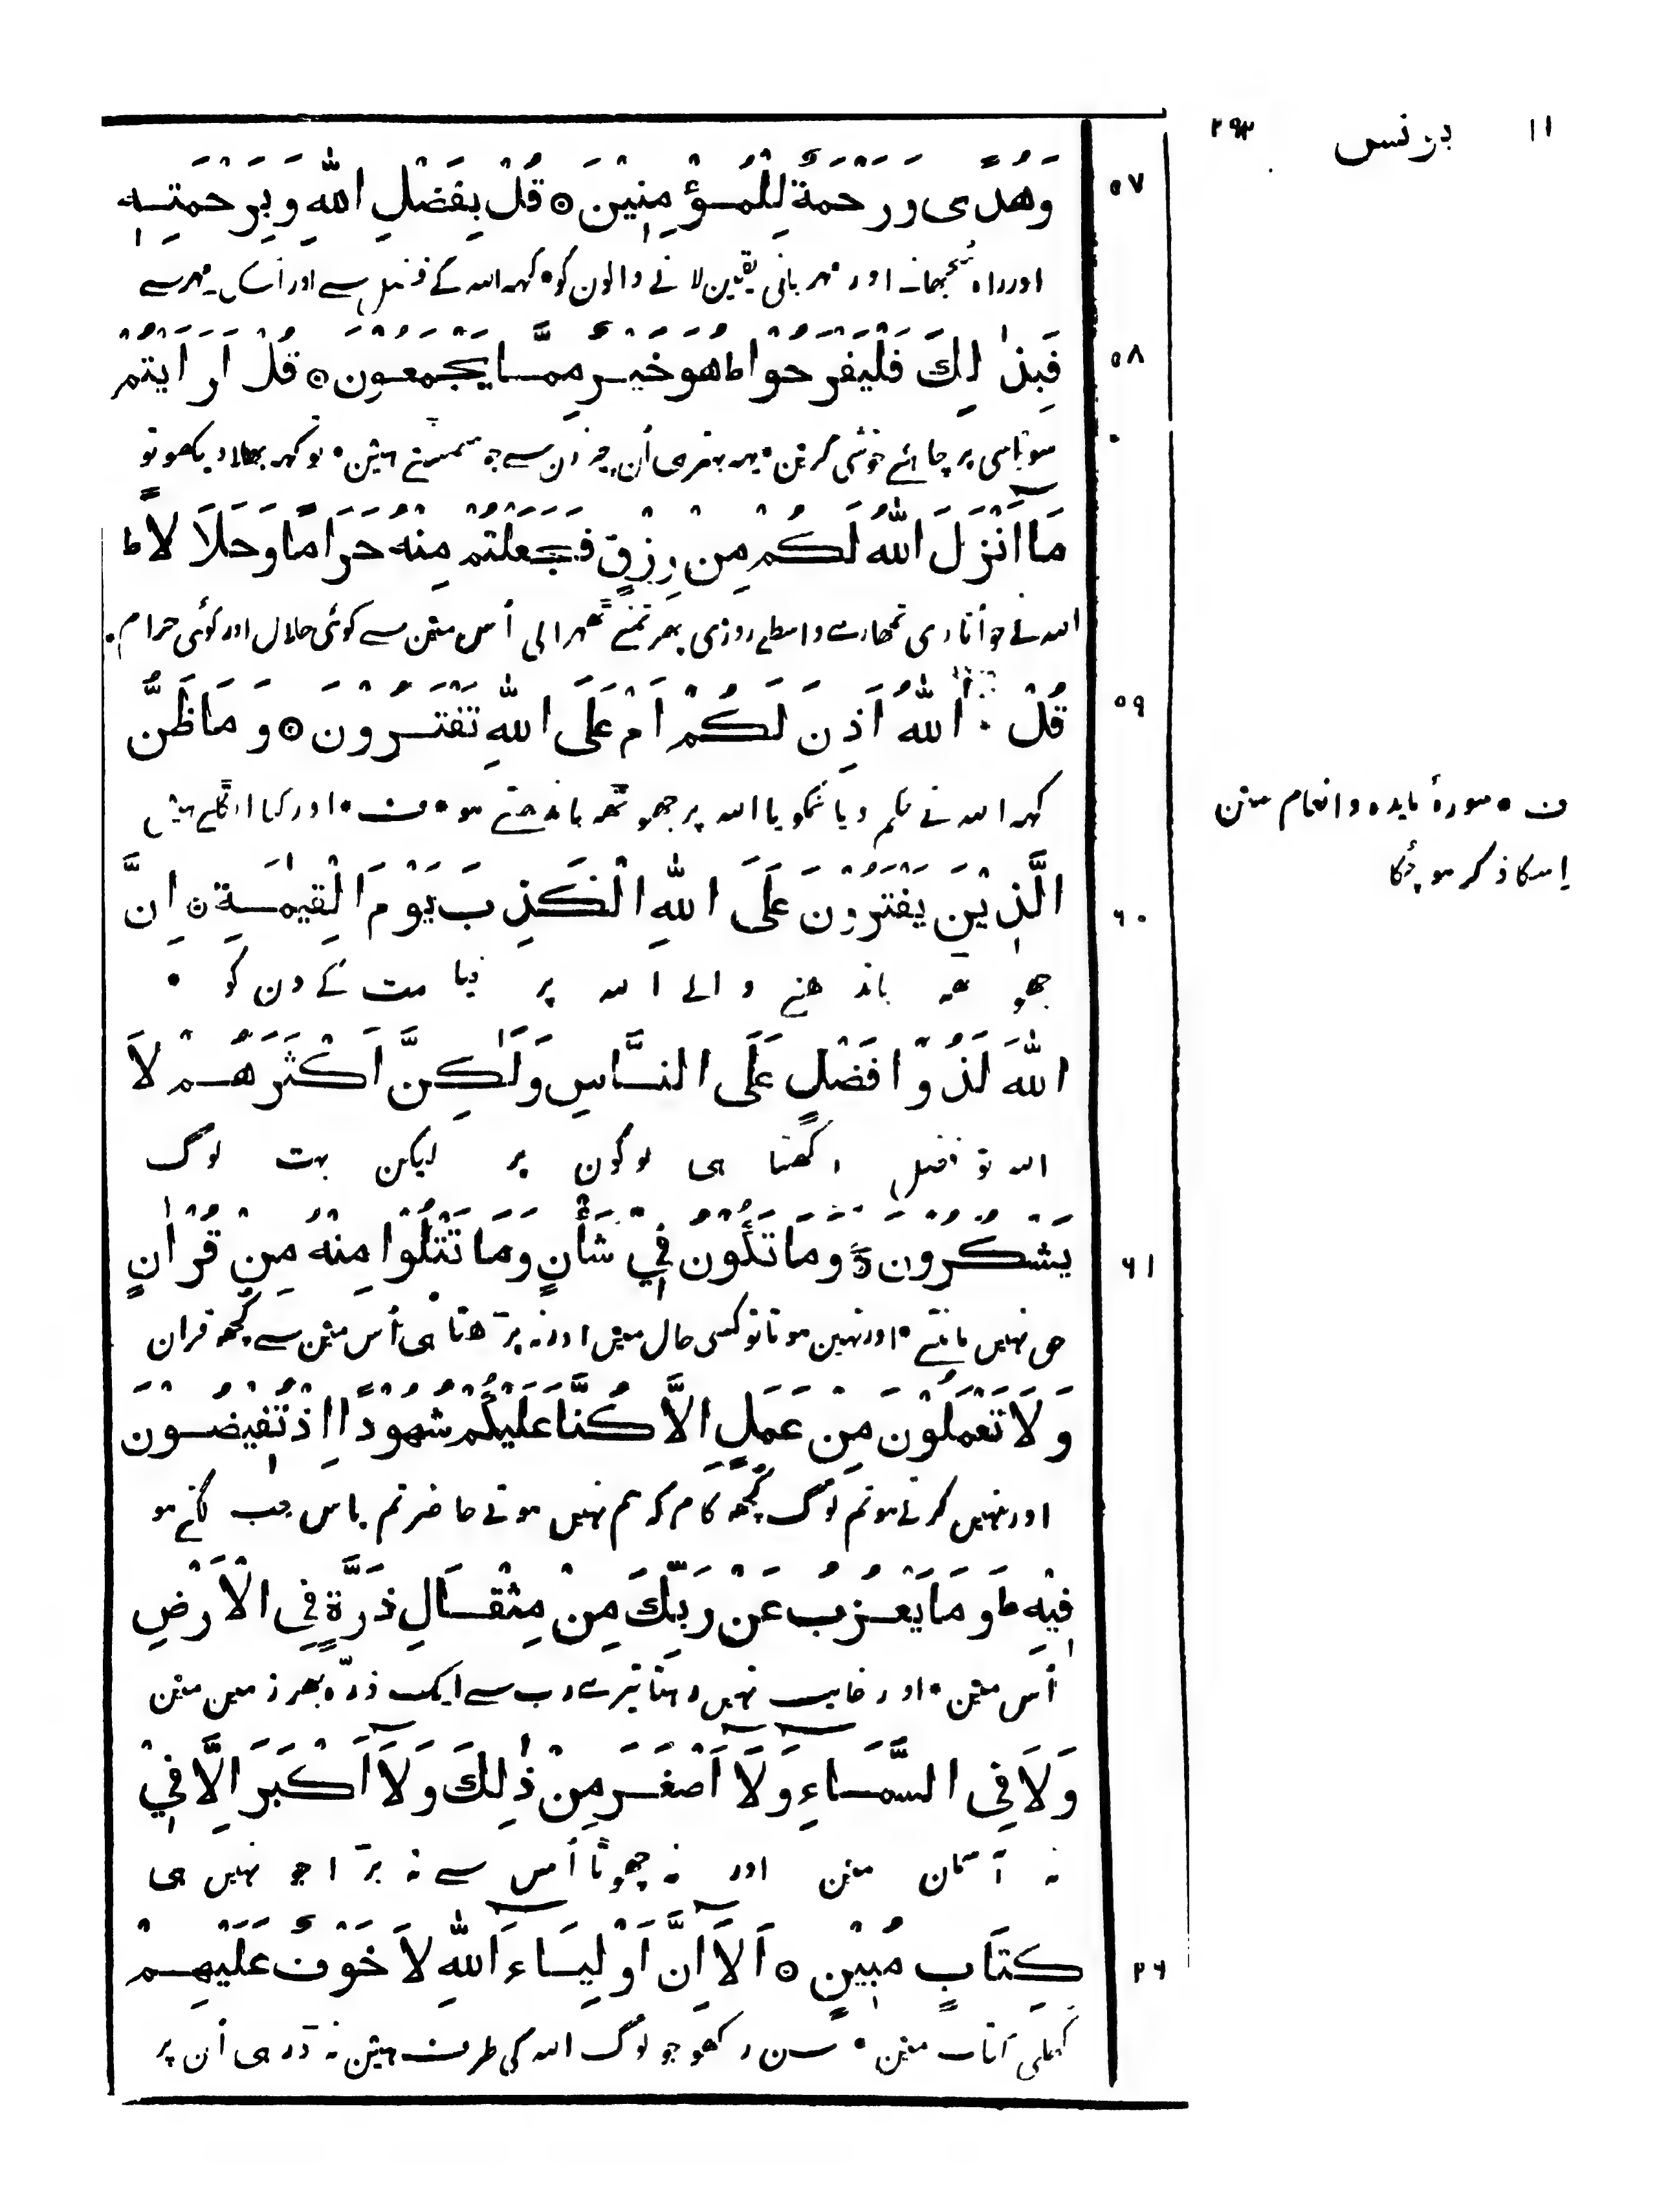 ۱۱ یونس ۲۹۳
۵۷
وَهُدًى وَرَحْمَةٌ لِلْمُؤْمِنِيْنَ ۞ قُلْ بِفَضْلِ اللّٰهِ وَبِرَحْمَتِهٖ
اور راہ سُجھانے اور مہربانی یقین لانے والون کو • کہہ اللہ کے فضل سے اور اُسکی مہر سے
۵۸
فَبِذٰلِكَ فَلْيَفْرَحُوْا ط هُوَ خَيْرٌ مِمَّا يَجْمَعُوْنَ ۞ قُلْ اَرَاَيْتُمْ
سو اِسی پر چاہئے خوشی کرین • یہہ بہتر ہی اُن چیزون سے جو سمیٹتے ہین • تو کہہ بھلا دیکھو تو
مَآ اَنْزَلَ اللّٰهُ لَكُمْ مِنْ رِزْقٍ فَجَعَلْتُمْ مِنْهُ حَرَامًا وَحَلَالًا ط
اللہ نے جو اُتاری تمھارے واسطے روزی پھر تمنے ٹھہرالی اُس مین سے کوئی حلال اور کوئی حرام •
۵۹
قُلْ آٰللّٰهُ اَذِنَ لَكُمْ اَمْ عَلَى اللّٰهِ تَفْتَرُوْنَ ۞ وَمَا ظَنُّ
کہہ اللہ نے حکم دیا تمکو یا اللہ پر جھوٹھہ باندھتے ہو • ف • اور کیا اٹکلے ہین
ف • سورۂ مایدہ و انعام مین
اِسکا ذکر ہو چُکا
۶۰
الَّذِيْنَ يَفْتَرُوْنَ عَلَى اللّٰهِ الْكَذِبَ يَوْمَ الْقِيٰمَةِ ۞ اِنَّ
جھوٹھہ باندھنے والے اللہ پر قیامت کے دن کو •
اللّٰهَ لَذُوْا فَضْلٍ عَلَى النَّاسِ وَلٰكِنَّ اَكْثَرَهُمْ لَا
اللہ تو فضل رکھتا ہی لوگون پر لیکن بہت لوگ
۶۱
يَشْكُرُوْنَ ۞ وَمَا تَكُوْنُ فِيْ شَأْنٍ وَمَا تَتْلُوْا مِنْهُ مِنْ قُرْاٰنٍ
حق نہیں مانتے • اور نہین ہوتا تو کسی حال مین اور نہ پڑھتا ہی اُس مین سے کُچھہ قران
وَلَا تَعْمَلُوْنَ مِنْ عَمَلٍ اِلَّا كُنَّا عَلَيْكُمْ شُهُوْدًا اِذْ تُفِيْضُوْنَ
اور نہیں کرتے ہو تم لوگ کُچھہ کام کہ ہم نہیں ہوتے حاضر تم پاس جب لگتے ہو
فِيْهِ ط وَمَا يَعْزُبُ عَنْ رَبِّكَ مِنْ مِثْقَالِ ذَرَّةٍ فِي الْاَرْضِ
اُس مین • اور غایب نہیں رہتا تیرے رب سے ایک ذرّہ بھر زمین مین
وَلَا فِي السَّمَآءِ وَلَآ اَصْغَرَ مِنْ ذٰلِكَ وَلَآ اَكْبَرَ اِلَّا فِيْ
نہ آسمان مین اور نہ چھوٹا اُس سے نہ بڑا جو نہیں ہی
۶۲
كِتَابٍ مُبِيْنٍ ۞ اَلَآ اِنَّ اَوْلِيَآءَ اللّٰهِ لَا خَوْفٌ عَلَيْهِمْ
کھُلی کتاب مین • سن رکھو جو لوگ اللہ کی طرف ہین نہ ڈر ہی اُن پر